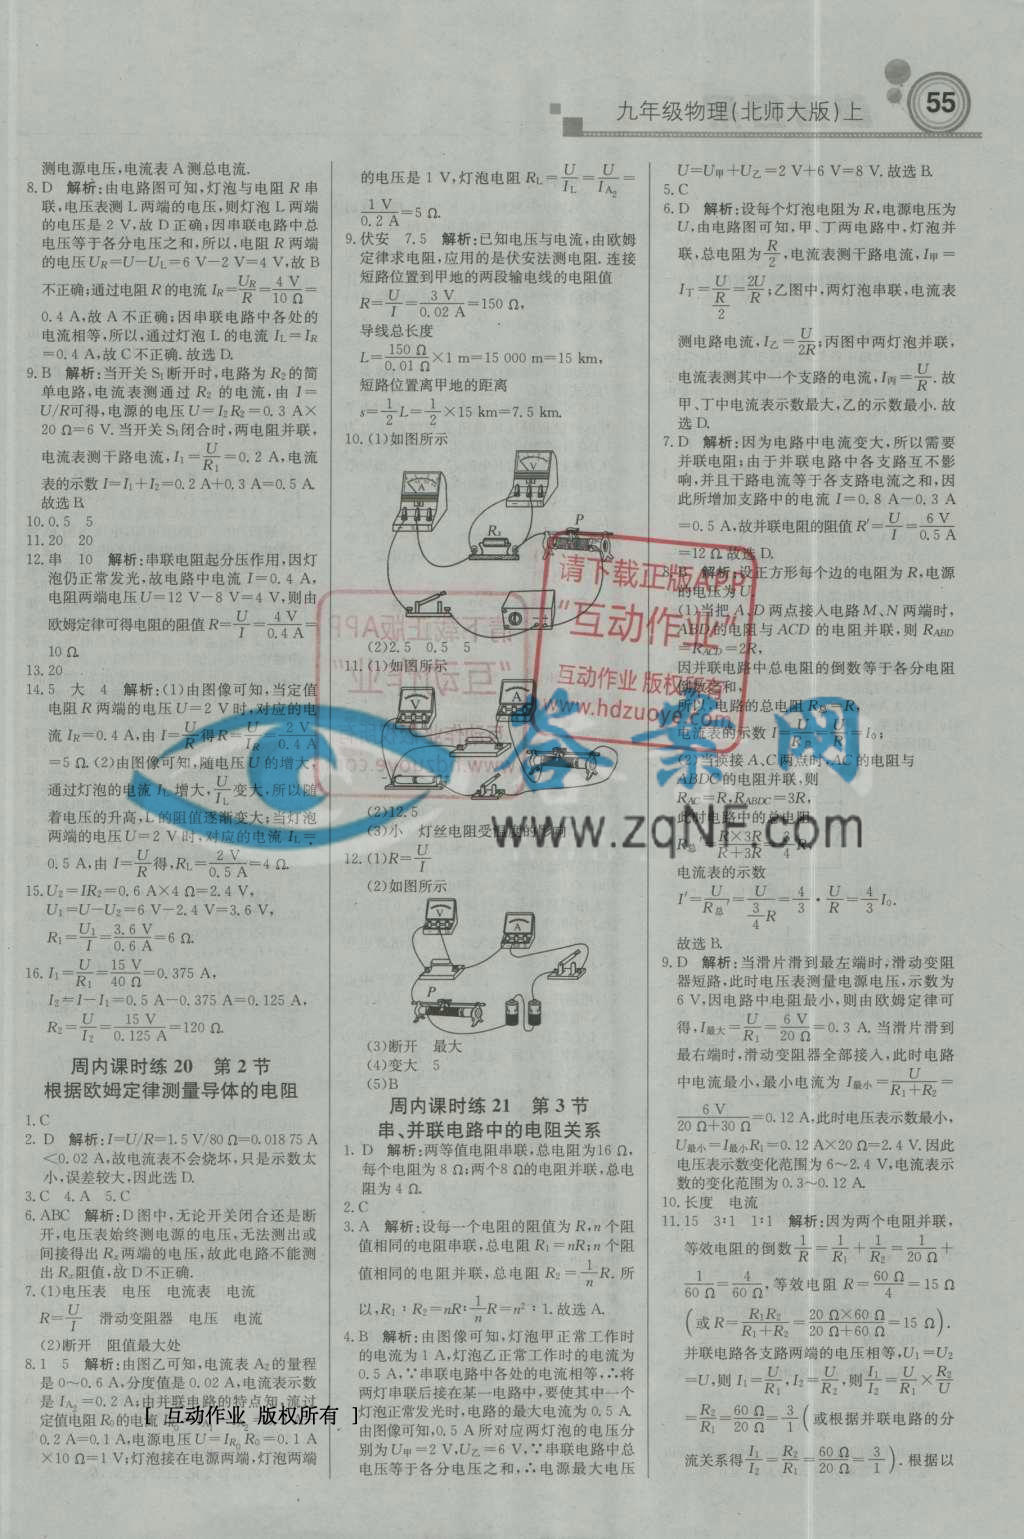 九年级物理(北师大版)上
55
测电源电压,电流表A测总电流.
8.D 解析:由电路图可知,灯泡与电阻R串
联,电压表测L两端的电压,则灯泡L两端
的电压是2 V,故D正确;因串联电路中总
电压等于各分电压之和,所以,电阻R两端
的电压UR=U-UL=6 V-2 V=4 V,故B
不正确;通过电阻R的电流IR=UR/R=4 V/10 Ω=
0.4 A,故A不正确;因串联电路中各处的
电流相等,所以,通过灯泡L的电流IL=IR
=0.4 A,故C不正确.故选D.
9.B 解析:当开关S1断开时,电路为R2的简
单电路,电流表测通过R2的电流,由I=
U/R可得,电源的电压U=I2R2=0.3 A×
20 Ω=6 V.当开关S1闭合时,两电阻并联,
电流表测干路电流,I1=U/R1=0.2 A,电流
表的示数I=I1+I2=0.2 A+0.3 A=0.5 A.
故选B.
10.0.5 5
11.20 20
12.串 10 解析:串联电阻起分压作用,因灯
泡仍正常发光,故电路中电流I=0.4 A,
电阻两端电压U=12 V-8 V=4 V,则由
欧姆定律可得电阻的阻值R=U/I=4 V/0.4 A=
10 Ω.
13.20
14.5 大 4 解析:(1)由图像可知,当定值
电阻R两端的电压U=2 V时,对应的电
流IR=0.4 A,由I=U/R得R=U/IR=2 V/0.4 A
=5 Ω.(2)由图像可知,随电压U的增大,
通过灯泡的电流IL增大,U/IL变大,所以随
着电压的升高,L的阻值逐渐变大;当灯泡
两端的电压U=2 V时,对应的电流IL=
0.5 A,由I=U/R得,RL=2 V/0.5 A=4 Ω.
15.U2=IR2=0.6 A×4 Ω=2.4 V,
U1=U-U2=6 V-2.4 V=3.6 V,
R1=U1/I=3.6 V/0.6 A=6 Ω.
16.I1=U/R1=15 V/40 Ω=0.375 A,
I2=I-I1=0.5 A-0.375 A=0.125 A,
R2=U/I2=15 V/0.125 A=120 Ω.
周内课时练20 第2节
根据欧姆定律测量导体的电阻
1.C
2.D 解析:I=U/R=1.5 V/80 Ω=0.018 75 A
<0.02 A,故电流表不会烧坏,只是示数太
小,误差较大,因此选D.
3.C 4.A 5.C
6.ABC 解析:D图中,无论开关闭合还是断
开,电压表始终测电源的电压,无法测出或
间接得出Rx两端的电压,故此电路不能测
出Rx阻值,故D不正确.
7.(1)电压表 电压 电流表 电流
R=U/I 滑动变阻器 电压 电流
(2)断开 阻值最大处
8.1 5 解析:由图乙可知,电流表A2的量程
是0~0.6 A,分度值是0.02 A,电流表示数
是IA2=0.2 A;由并联电路的特点知,流过
定值电阻R0的电流
0.2 A=0.1 A,电源电压U=IR0R0=0.1 A
×10 Ω=1 V;灯泡接在电源两端,灯泡两端
的电压是1 V,灯泡电阻RL=U/IL=U/IA2=
1 V/0.2 A=5 Ω.
9.伏安 7.5 解析:已知电压与电流,由欧姆
定律求电阻,应用的是伏安法测电阻.连接
短路位置到甲地的两段输电线的电阻值
R=U/I=3 V/0.02 A=150 Ω,
导线总长度
L=150 Ω/0.01 Ω×1 m=15 000 m=15 km,
短路位置离甲地的距离
s=1/2L=1/2×15 km=7.5 km.
10.(1)如图所示
A
V
Rx
P
(2)2.5 0.5 5
11.(1)如图所示
V
A
(2)12.5
(3)小 灯丝电阻受温度的影响
12.(1)R=U/I
(2)如图所示
V
A
P
(3)断开 最大
(4)变大 5
(5)B
周内课时练21 第3节
串、并联电路中的电阻关系
1.D 解析:两等值电阻串联,总电阻为16 Ω,
每个电阻为8 Ω;两个8 Ω的电阻并联,总电
阻为4 Ω.
2.C
3.A 解析:设每一个电阻的阻值为R,n个阻
值相同的电阻串联,总电阻R1=nR;n个阻
值相同的电阻并联,总电阻R2=1/nR.所
以,R1∶R2=nR∶1/nR=n²∶1.故选A.
4.B 解析:由图像可知,灯泡甲正常工作时
的电流为1 A,灯泡乙正常工作时的电流为
0.5 A,∵串联电路中各处的电流相等,∴将
两灯串联后接在某一电路中,要使其中一个
灯泡正常发光时,电路的最大电流为0.5 A.
由图像可知,0.5 A所对应两灯泡的电压分
别为U甲=2 V,U乙=6 V,∵串联电路中总
电压等于各分电压之和,∴电源最大电压
U=U甲+U乙=2 V+6 V=8 V.故选B.
5.C
6.D 解析:设每个灯泡电阻为R,电源电压为
U,由电路图可知,甲、丁两电路中,灯泡并
联,总电阻为R/2,电流表测干路电流,I甲=
I丁=U/(R/2)=2U/R;乙图中,两灯泡串联,电流表
测电路电流,I乙=U/2R;丙图中两灯泡并联,
电流表测其中一个支路的电流,I丙=U/R.故
甲、丁中电流表示数最大,乙的示数最小.故
选D.
7.D 解析:因为电路中电流变大,所以需要
并联电阻;由于并联电路中各支路互不影
响,并且干路电流等于各支路电流之和,因
此所增加支路中的电流I=0.8 A-0.3 A
=0.5 A,故并联电阻的阻值R′=U/I=6 V/0.5 A
=12 Ω.故选D.
8.B 解析:设正方形每个边的电阻为R,电源
的电压为U.
(1)当把A、D两点接入电路M、N两端时,
ABD的电阻与ACD的电阻并联,则RABD
=RACD=2R,
因并联电路中总电阻的倒数等于各分电阻
倒数之和,
所以,电路的总电阻R总=R,
电流表的示数I=U/R总=U/R=I0;
(2)当换接A、C两点时,AC的电阻与
ABDC的电阻并联,则
RAC=R,RABDC=3R,
此时电路中的总电阻
R总′=R×3R/R+3R=3/4R,
电流表的示数
I′=U/R总′=U/(3/4R)=4/3·U/R=4/3I0.
故选B.
9.D 解析:当滑片滑到最左端时,滑动变阻
器短路,此时电压表测量电源电压,示数为
6 V,因电路中电阻最小,则由欧姆定律可
得,I最大=U/R1=6 V/20 Ω=0.3 A.当滑片滑到
最右端时,滑动变阻器全部接入,此时电路
中电流最小,最小电流为I最小=U/R1+R2=
6 V/20 Ω+30 Ω=0.12 A,此时电压表示数最小,
U最小=I最小R1=0.12 A×20 Ω=2.4 V.因此
电压表示数变化范围为6~2.4 V,电流表示
数的变化范围为0.3~0.12 A.
10.长度 电流
11.15 3∶1 1∶1 解析:因为两个电阻并联,
等效电阻的倒数1/R=1/R1+1/R2=1/20 Ω+
1/60 Ω=4/60 Ω,等效电阻R=60 Ω/4=15 Ω
(或R=R1R2/R1+R2=20 Ω×60 Ω/20 Ω+60 Ω=15 Ω).
并联电路各支路两端的电压相等,U1=U2
=U,则I1=U/R1,I2=U/R2,则I1/I2=U/R1×R2/U
=R2/R1=60 Ω/20 Ω=3/1(或根据并联电路的分
流关系得I1/I2=R2/R1=60 Ω/20 Ω=3/1).根据以
请下载正版APP
“互动作业”
互动作业 版权所有
www.hdzuoye.com
答案网
www.zqNF.com
[ 互动作业 版权所有 ]